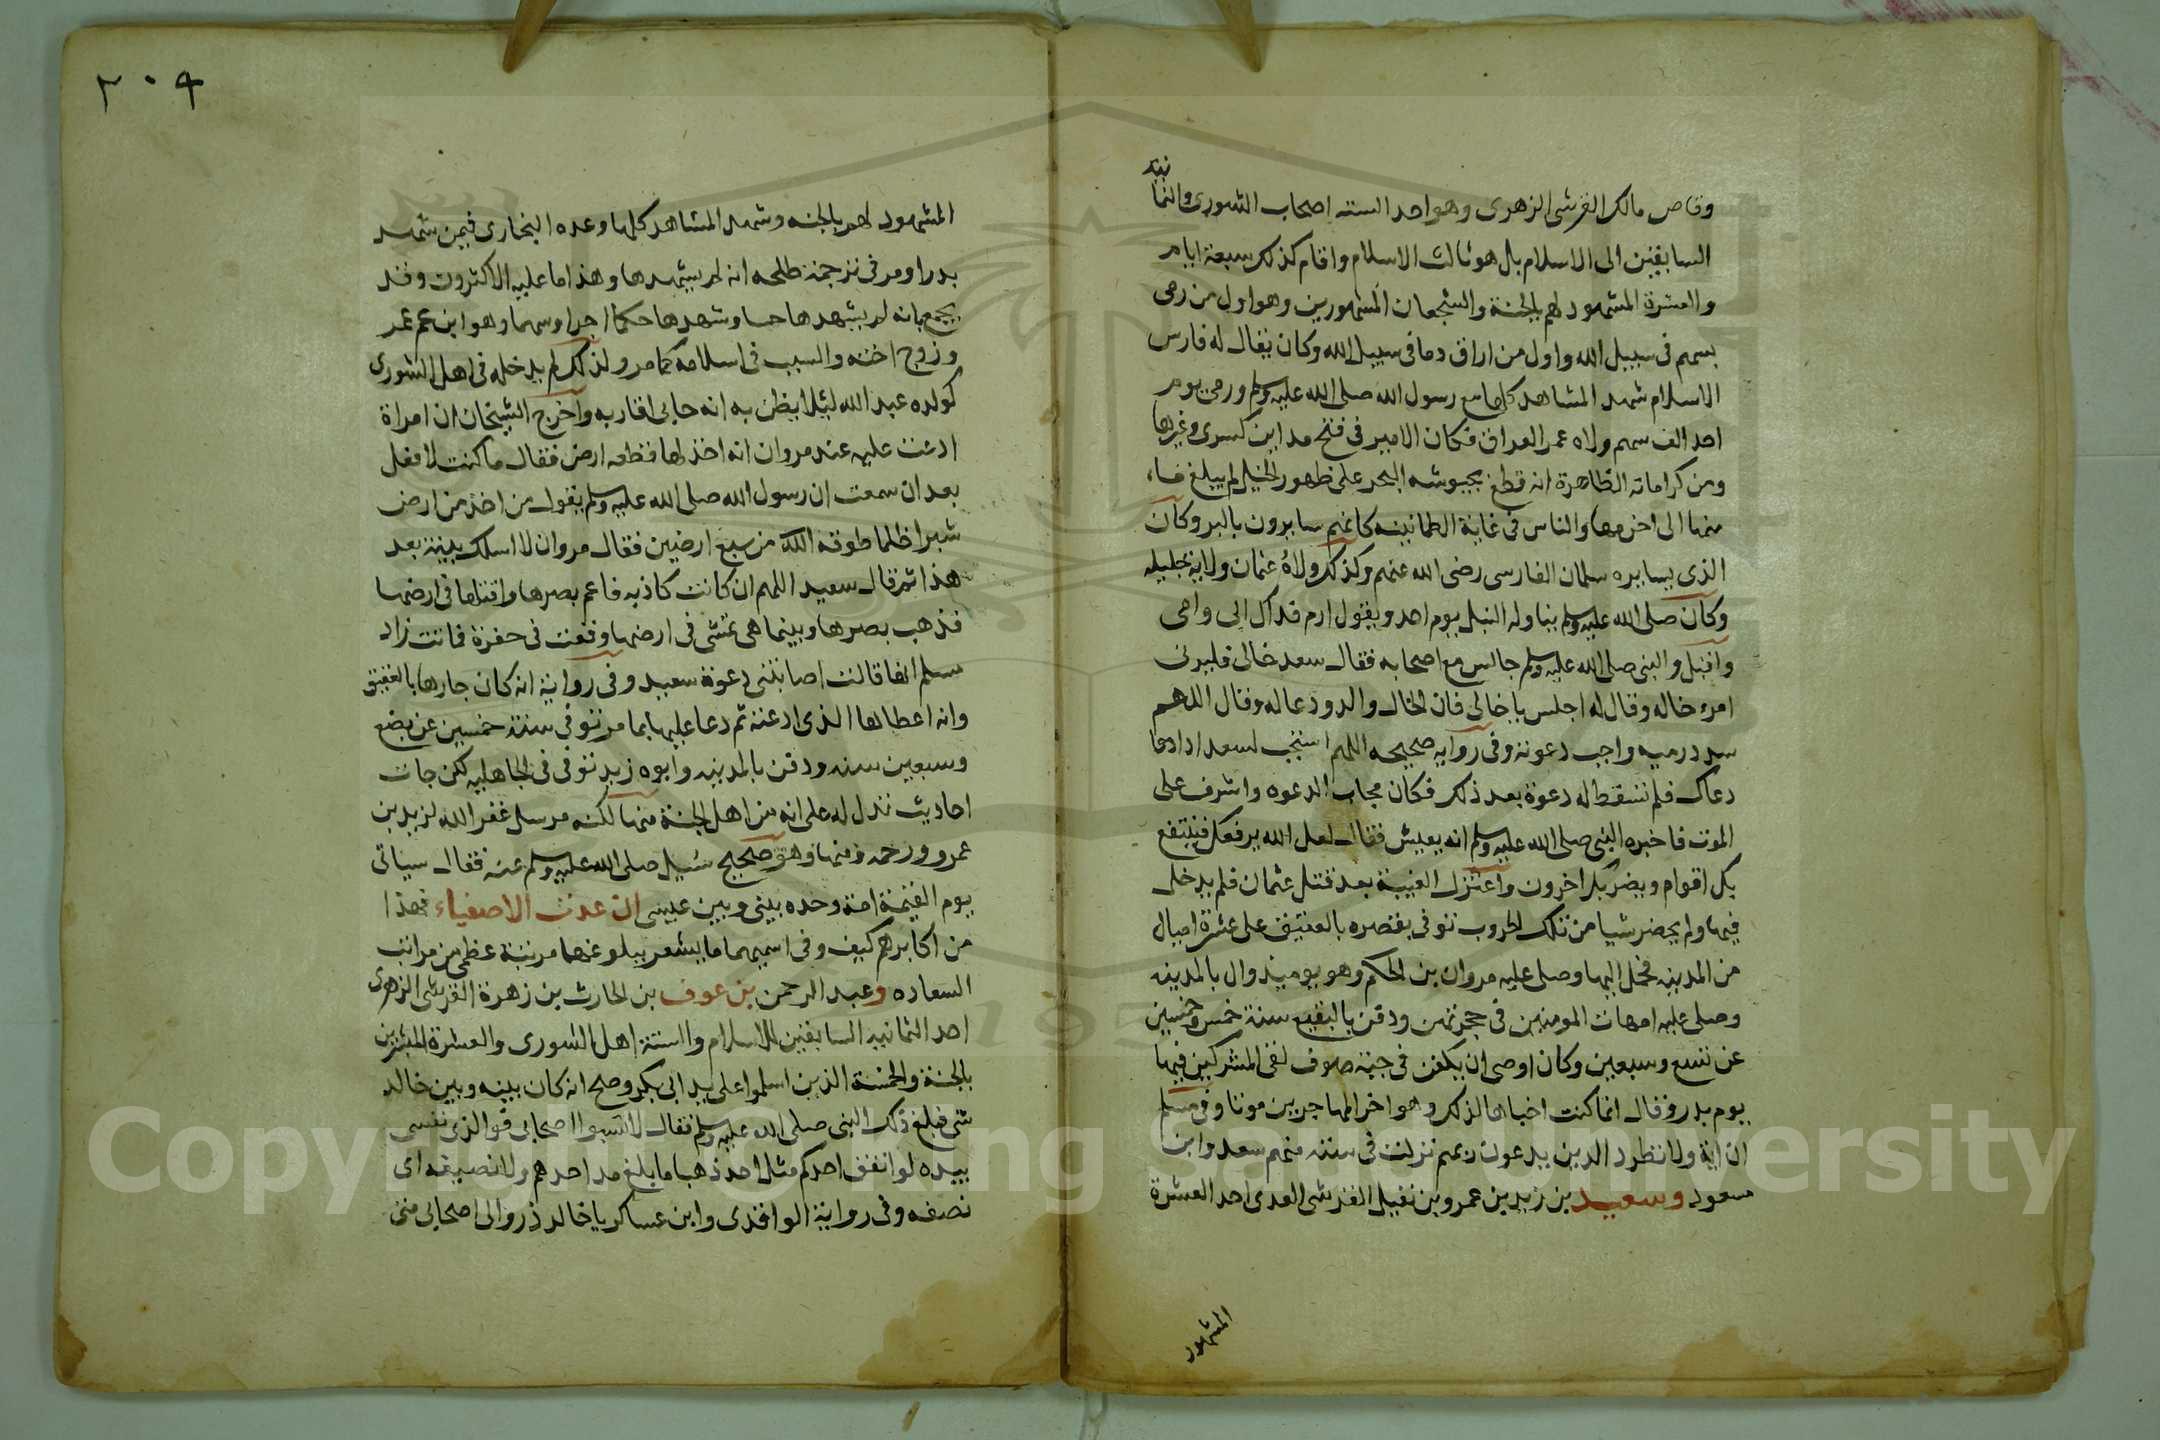 وقاص مالك القرشى الزهرى وهو احد الستة اصحاب الشورى والثما
نية
السابقين الى الاسلام بل هو ثالث الاسلام واقام كذلك سبعة ايام
والعشرة المشهود لهم بالجنة والشجعان المشهورين وهو اول من رمى
بسهم فى سبيل الله واول من اراق دما فى سبيل الله وكان يقال له فارس
الاسلام شهد المشاهد كلها مع رسول الله صلى الله عليه وسلم ورمى يوم
احد الف سهم ولاه عمر العراق فكان الامير فى فتح مداين كسرى وغيرها
ومن كراماته الظاهرة انه قطع بجيوشه البحر على ظهور الخيل لم يبلغ ماء
منها الى احزمها والناس فى غاية الطمانينه كانهم سايرون بالبر وكان
الذى يسايره سلمان الفارسى رضى الله عنهم وكذلك ولاه عثمان ولاية جليله
وكان صلى الله عليه وسلم يناوله النبل يوم احد ويقول ارم فداك ابى وامى
واقبل والنبى صلى الله عليه وسلم جالس مع اصحابه فقال سعد خالى فليرنى
امرء خاله وقال له اجلس يا خالى فان الخال والد ودعا له وقال اللهم
سدد رميه واجب دعوته وفى روايه صحيحه اللهم استجب لسعد اذا دعا
دعاك فلم تسقط له دعوة بعد ذلك فكان مجاب الدعوه واشرف على
الموت فاخبره النبى صلى الله عليه وسلم انه يعيش فقال لعل الله يرفعك فينتفع
بك اقوام ويضر بك اخرون واعتزل الفتنة بعد قتل عثمان فلم يدخل
فيها ولم يحضر شيا من تلك الحروب توفى بقصره بالعقيق على عشرة اميال
من المدينه فحمل اليها وصلى عليه مروان بن الحكم وهو يوميذ وال بالمدينه
وصلى عليه امهات المومنين فى حجرتهن ودفن بالبقيع سنة خمس وخمسين
عن تسع وسبعين وكان اوصى ان يكفن فى جبة صوف لقى المشركين فيها
يوم بدر وقال انما كنت اخباها لذلك وهو اخر المهاجرين موتا وفى مسلم
ان اية ولا تطرد الذين يدعون ربهم نزلت فى ستة منهم سعد وابن
مسعود وسعيد بن زيد بن عمرو بن نفيل القرشى العدى احد العشرة
المشهود
٢٠٩
المشهود لهم بالجنه وشهد المشاهد كلها وعده البخارى فيمن شهد
بدرا ومر فى ترجمة طلحه انه لم يشهدها وهذا ما عليه الاكثرون وقد
يجمع بانه لم يشهدها حسا وشهدها حكما اجرا وسهما وهو ابن عم عمر
وزوج اخته والسبب فى اسلامه كما مر ولذلك لم يدخله فى اهل الشورى
كولده عبد الله ليلا يظن به انه حابى اقاربه واخرج الشيخان ان امراة
ادعت عليه عند مروان انه اخذ لها قطعه ارض فقال ما كنت لافعل
بعد ان سمعت ان رسول الله صلى الله عليه وسلم يقول من اخذ من ارض
شبرا ظلما طوقه الله من سبع ارضين فقال مروان لا اسلك بينة بعد
هذا ثم قال سعيد اللهم ان كانت كاذبه فاعم بصرها واقتلها فى ارضها
فذهب بصرها وبينما هى تمشى فى ارضها وقعت فى حفرة فماتت زاد
مسلم انها قالت اصابتنى دعوة سعيد وفى رواية انه كان جارها بالعقيق
وانه اعطاها الذى ادعته ثم دعا عليها بما مر توفى سنة خمسين عن بضع
وسبعين سنه ودفن بالمدينه وابوه زيد توفى فى الجاهليه لكن جات
احاديث تدل له على انه من اهل الجنة منها لكنه مرسل غفر الله لزيد بن
عمرو ورحمه ومنها وهو صحيح سئيل صلى الله عليه وسلم عنه فقال سياتى
يوم القيمة امة وحده بينى وبين عيسى ان عدت الاصفياء فهذا
من اكابرهم كيف وفى اسميهما ما يشعر ببلوغهما مرتبة عظمى من مراتب
السعاده وعبد الرحمن بن عوف بن الحارث بن زهرة القرشى الزهرى
احد الثمانيه السابقين للاسلام والستة اهل الشورى والعشرة المبشرين
بالجنة والخمسة الذين اسلموا على يد ابى بكر وصح انه كان بينه وبين خالد
شى فبلغ ذلك النبى صلى الله عليه وسلم فقال لا تسبوا اصحابى فو الذى نفسى
بيده لو انفق احدكم مثل احد ذهبا ما بلغ مد احدهم ولا نصيفه اى
نصفه وفى رواية الواقدى وابن عساكر يا خالد ذروا لى اصحابى متى
Copyright © King Saud University